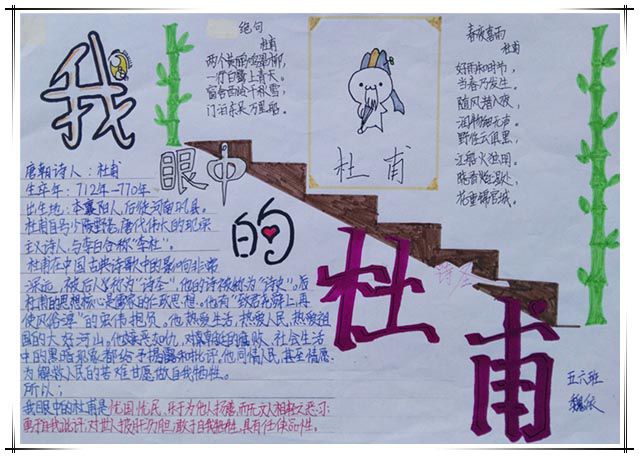 我
眼中
的
杜甫
诗圣
绝句
杜甫
两个黄鹂鸣翠柳,
一行白鹭上青天。
窗含西岭千秋雪,
门泊东吴万里船。
杜甫
春夜喜雨
杜甫
好雨知时节,
当春乃发生。
随风潜入夜,
润物细无声。
野径云俱黑,
江船火独明。
晓看红湿处,
花重锦官城。
唐朝诗人:杜甫
生卒年:712年-770年
出生地:本襄阳人,后徙河南巩县。
杜甫自号少陵野老,唐代伟大的现实
主义诗人,与李白合称“李杜”。
杜甫在中国古典诗歌中的影响非常
深远,被后人称为“诗圣”,他的诗被称为“诗史”。
杜甫的思想核心是儒家的仁政思想。他有“致君尧舜上,再
使风俗淳”的宏伟抱负。他热爱生活,热爱人民,热爱祖
国的大好河山。他嫉恶如仇,对朝廷的腐败、社会生活
中的黑暗现象都给予揭露和批评。他同情人民,甚至情愿
为解救人民的苦难甘愿做自我牺牲。
所以:
我眼中的杜甫是忧国忧民,乐于为他人扬善,而无文人相轻之恶习;
勇于自我批评,对世人披肝沥胆,敢于自我牺牲,具有任侠品性。
五六班
魏依